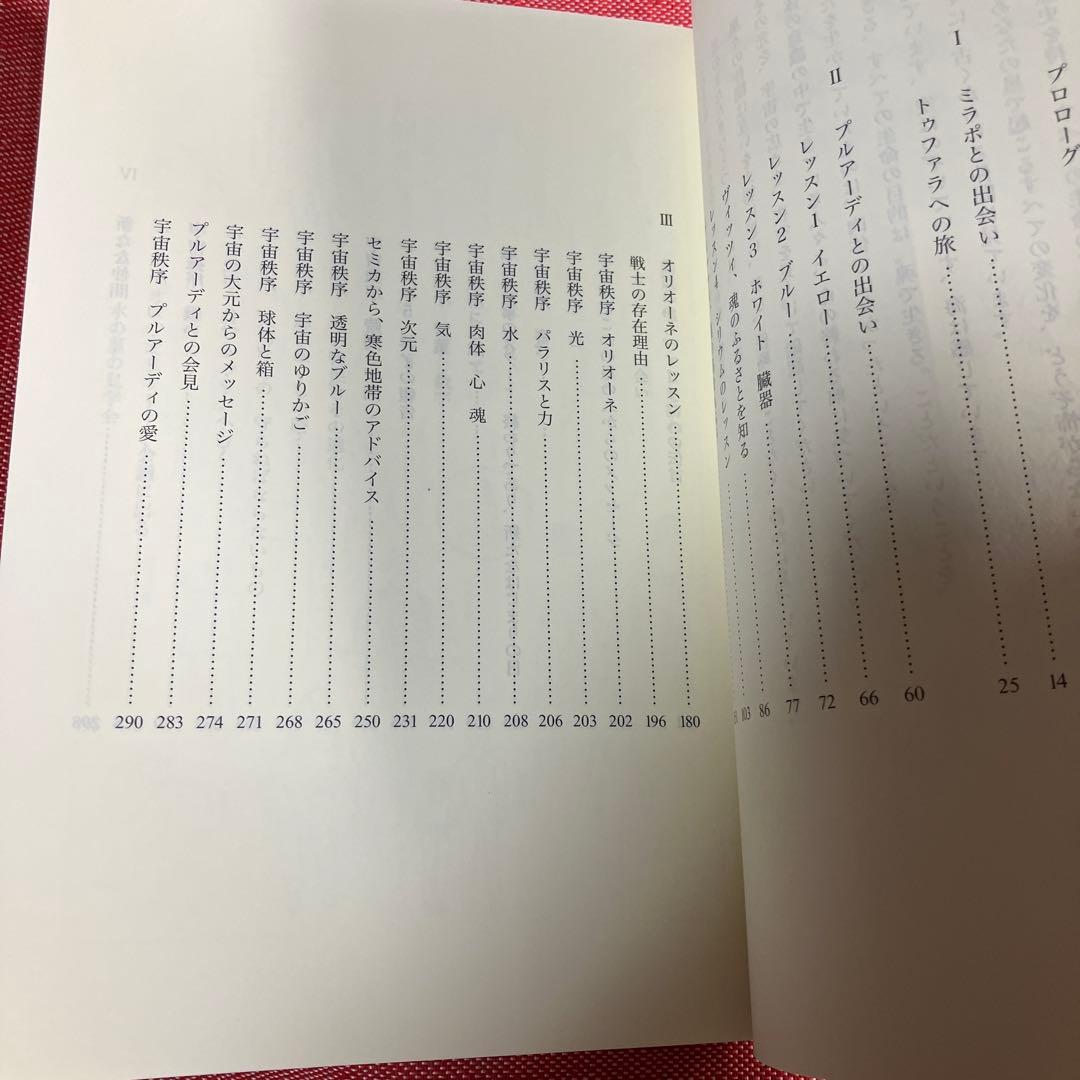 プロローグ 14
Ⅰ ミラポとの出会い 25
トゥファラへの旅 60
Ⅱ プルアーディとの出会い 66
レッスン1 イエロー 72
レッスン2 ブルー 77
レッスン3 ホワイト 臓器 86
ヴィッツイ、魂のふるさとを知る 103
レッスン4 シリウムのレッスン
Ⅲ オリオーネのレッスン 180
戦士の存在理由 196
宇宙秩序 オリオーネ 202
宇宙秩序 光 203
宇宙秩序 パラリスと力 206
宇宙秩序 水 208
宇宙秩序 肉体 心 魂 210
宇宙秩序 気 220
宇宙秩序 次元 231
セミカから、寒色地帯のアドバイス 250
宇宙秩序 透明なブルー 265
宇宙秩序 宇宙のゆりかご 268
宇宙秩序 球体と箱 271
宇宙の大元からのメッセージ 274
プルアーディとの会見 283
宇宙秩序 プルアーディの愛 290